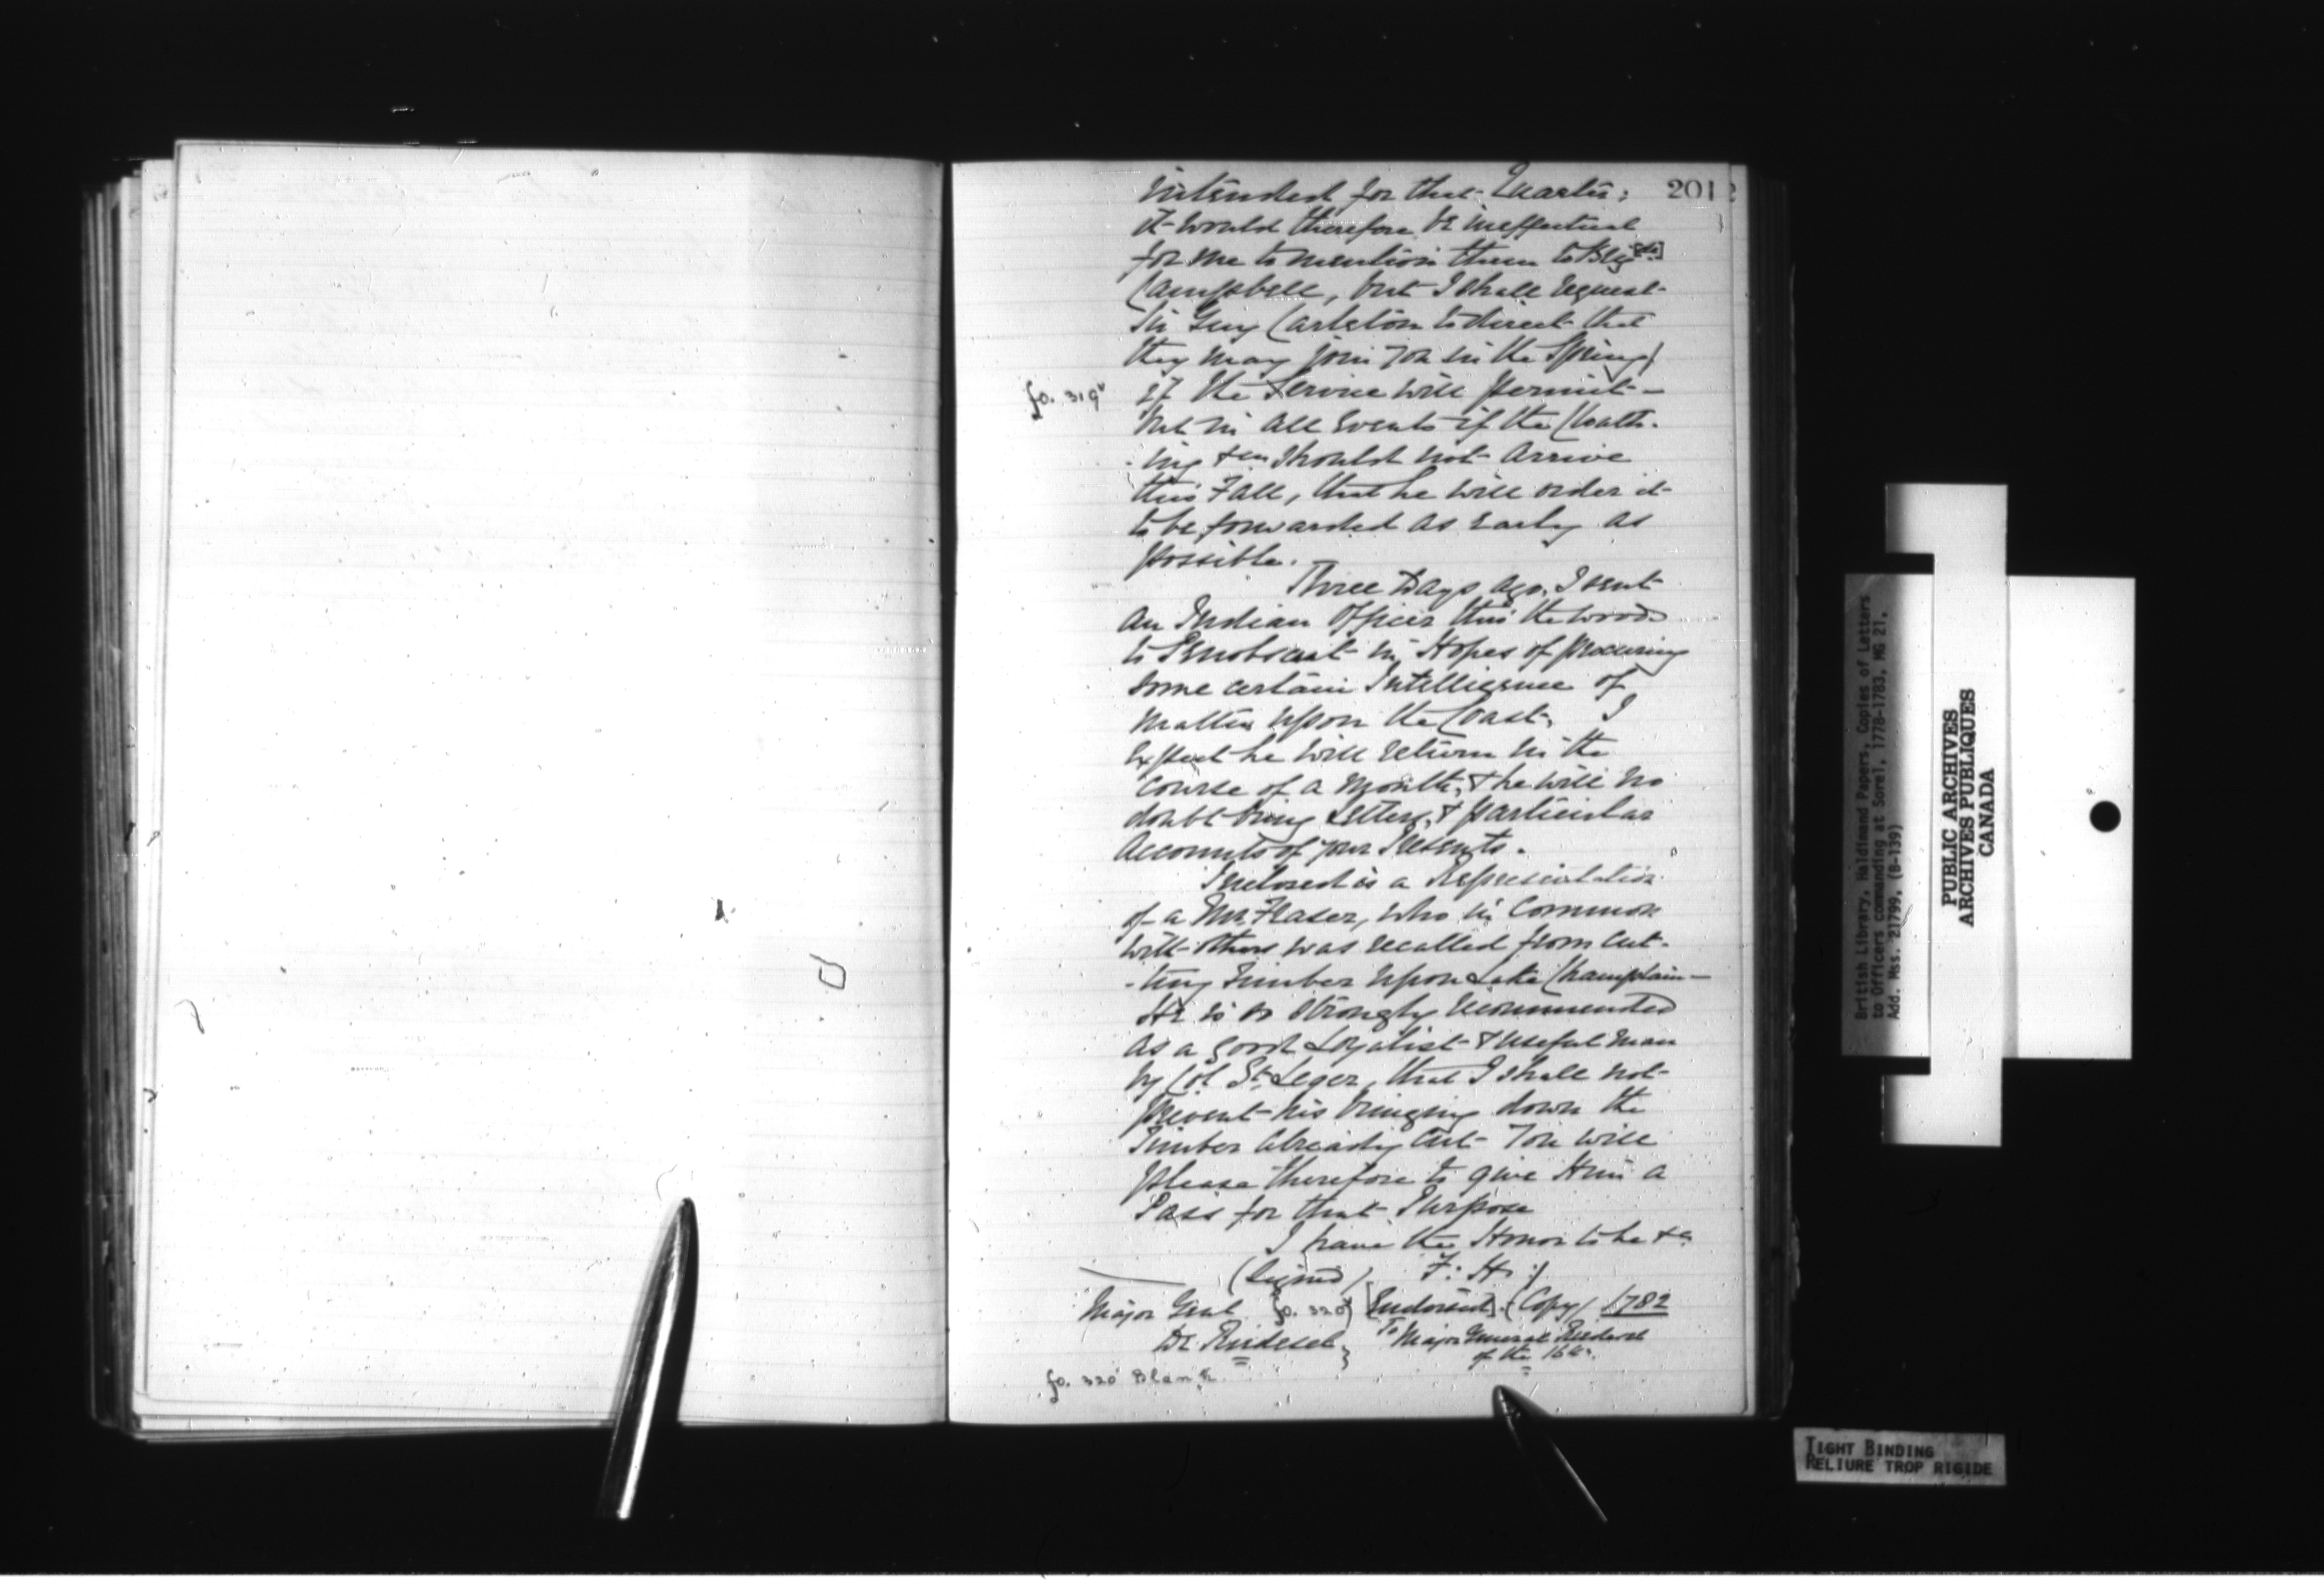 201
intended for that Quarter;
it would therefore be ineffectual
for me to mention them to Brig[dr]
Campbell, but I shall request
Sir Guy Carleton to direct that
they may join you in the Spring,
fo. 319v if the Service will permit —
but in all Events if the Cloath-
-ing &ca should not arrive
this Fall, that he will order it
to be forwarded as early as
possible.
Three Days ago, I sent
an Indian Officer thro' the woods
to Penobscot in Hopes of procuring
some certain Intelligence of
matters upon the Coast. I
expect he will return in the
course of a Month, & he will no
doubt bring Letters, & particular
Accounts of your Recruits.
Inclosed is a Representation
of a Mr. Fraser, who in common
with others was recalled from cut-
-ting Timber upon Lake Champlain —
He is so strongly recommended
as a good Loyalist & useful man
by Col St. Leger, that I shall not
prevent his bringing down the
Timber already cut - You will
please therefore to give Him a
Pass for that Purpose
I have the Honor to be &ca
(Signed) F: H:
Major Genl fo. 320v [Endorsed]. (Copy) 1782
De Riedesel To Major General Riedesel
of the 16th.
fo. 320 Blank
British Library, Haldimand Papers, Copies of Letters
to Officers commanding at Sorel, 1778-1783, MG 21,
Add. Mss. 21799, (B-139)
PUBLIC ARCHIVES
ARCHIVES PUBLIQUES
CANADA
TIGHT BINDING
RELIURE TROP RIGIDE